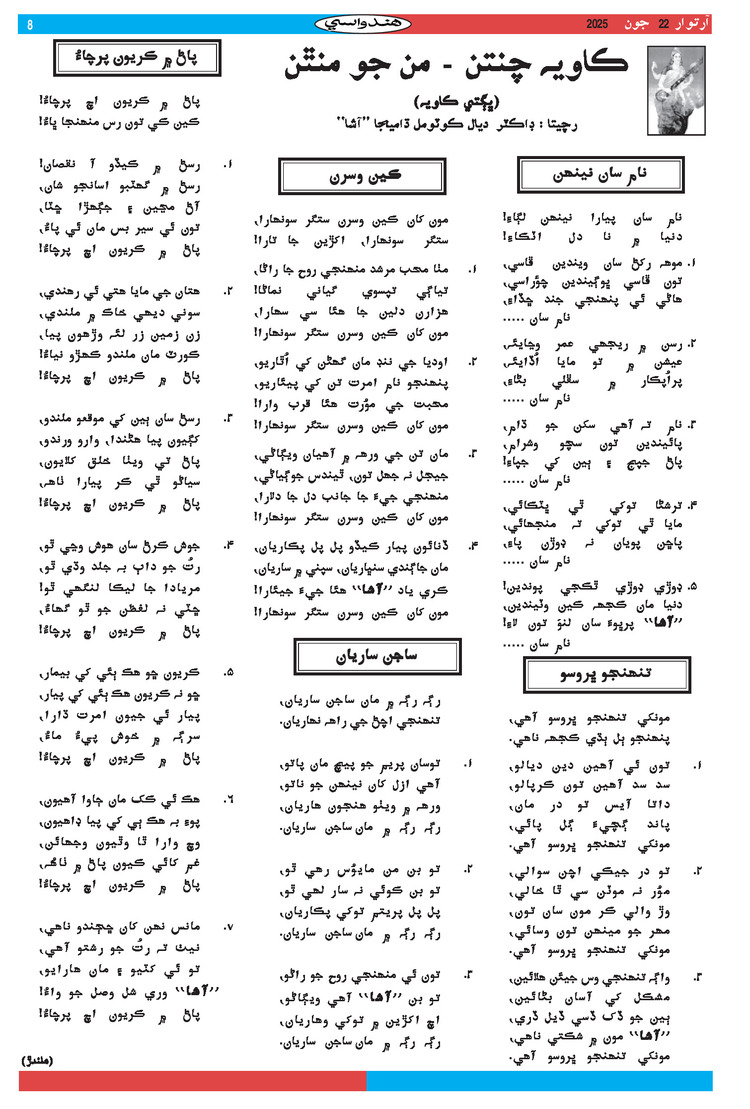 آرتوار 22 جون 2025
هندواسي
8
ڪاويہ چنتن - من جو منٿن
(ڀڳتي ڪاويہ)
رچيتا : ڊاڪٽر ديال ڪوٽومل ڌاميجا ”آشا“
نام سان نينهن
نام سان پيارا نينهن لڳاءِ!
دنيا ۾ نا دل اٽڪاءِ!
۱. موهہ رکڻ سان ويندين ڦاسي،
تون ڦاسي ڀوڳيندين چؤراسي،
هاڻي ئي پنهنجي جند ڇڏاءِ،
نام سان .....
۲. رسن ۾ ريجهي عمر وڃايئہ،
عيشن ۾ تو مايا اُڏايئہ،
پراُپڪار ۾ سڦلي بڻاءِ،
نام سان .....
۳. نام تہ آهي سکن جو ڌام،
پائيندين تون سچو وشرام،
پاڻ جپج ۽ ٻين کي جپاءِ!
نام سان .....
۴. ترشنا توکي ٿي ڀٽڪائي،
مايا ٿي توکي تہ منجهائي،
پاڇن پويان نہ ڊوڙن پاءِ،
نام سان .....
۵. ڊوڙي ڊوڙي ٿڪجي پوندين!
دنيا مان ڪجهہ ڪين وٺيندين،
”آشا“ پرڀوءَ سان لنوَ تون لاءِ!
نام سان .....
تنهنجو ڀروسو
مونکي تنهنجو ڀروسو آهي،
پنهنجو ٻل ٻڌي ڪجهہ ناهي.
۱. تون ئي آهين دين ديالو،
سد سد آهين تون ڪرپالو،
داتا آيس تو در مان،
پاند ڳچيءَ ڳل پائي،
مونکي تنهنجو ڀروسو آهي.
۲. تو در جيڪي اچن سوالي،
موُر نہ موٽن سي ٿا خالي،
وڙ والي ڪر مون سان تون،
مهر جو مينهن تون وسائي،
مونکي تنهنجو ڀروسو آهي.
۳. واڳہ تنهنجي وس جيئن هلائين،
مشڪل کي آسان بڻائين،
ٻين جو ڏک ڏسي ڏيل ڏري،
”آشا“ مون ۾ شڪتي ناهي،
مونکي تنهنجو ڀروسو آهي.
ڪين وسرن
مون کان ڪين وسرن ستگر سونهارا،
ستگر سونهارا، اکڙين جا تارا!
۱. مٺا محب مرشد منهنجي روح جا راڻا،
تياڳي تپسوي گياني نماڻا!
هزارن دلين جا هئا سي سهارا،
مون کان ڪين وسرن ستگر سونهارا!
۲. اوديا جي ننڊ مان گهڻن کي اُٿاريو،
پنهنجو نام امرت تن کي پيئاريو،
محبت جي موُرت هئا قرب وارا!
مون کان ڪين وسرن ستگر سونهارا!
۳. مان تن جي ورهہ ۾ آهيان ويڳاڻي،
جيجل نہ جهل تون، ٿيندس جوڳياڻي،
منهنجي جيءَ جا جانب دل جا دلارا،
مون کان ڪين وسرن ستگر سونهارا!
۴. ڏنائون پيار ڪيڏو پل پل پڪاريان،
مان جاڳندي سنڀاريان، سپني ۾ ساريان،
ڪري ياد ”آشا“ هئا جيءَ جيئارا!
مون کان ڪين وسرن ستگر سونهارا!
ساجن ساريان
رڳہ رڳہ ۾ مان ساجن ساريان،
تنهنجي اچڻ جي راهہ نهاريان.
۱. توسان پريم جو پيچ مان پاتو،
آهي ازل کان نينهن جو ناتو،
ورهہ ۾ ويٺو هنجون هاريان،
رڳہ رڳہ ۾ مان ساجن ساريان.
۲. تو بن من مايوُس رهي ٿو،
تو بن ڪوئي نہ سار لهي ٿو،
پل پل پريتم توکي پڪاريان،
رڳہ رڳہ ۾ مان ساجن ساريان.
۳. تون ئي منهنجي روح جو راڻو،
تو بن ”آشا“ آهي ويڳاڻو،
اچ اکڙين ۾ توکي وهاريان،
رڳہ رڳہ ۾ مان ساجن ساريان.
پاڻ ۾ ڪريون پرچاءُ
پاڻ ۾ ڪريون اچ پرچاءُ!
ڪين کي تون رس منهنجا ڀاءُ!
۱. رسڻ ۾ ڪيڏو آ نقصان!
رسڻ ۾ گهٽبو اسانجو شان،
آڻ مڃين ۽ جڳهڙا ڇٽا،
تون ئي سير بس مان ئي پاءُ،
پاڻ ۾ ڪريون اچ پرچاءُ!
۲. هتان جي مايا هتي ئي رهندي،
سوني ديهي خاڪ ۾ ملندي،
زن زمين زر لئہ وڙهون پيا،
ڪورٽ مان ملندو ڪهڙو نياءُ!
پاڻ ۾ ڪريون اچ پرچاءُ!
۳. رسڻ سان ٻين کي موقعو ملندو،
ڪڳيون پيا هڻندا، وارو ورندو،
پاڻ تي ويٺا خلق کلايون،
سياڻو ٿي ڪر پيارا ٺاهہ،
پاڻ ۾ ڪريون اچ پرچاءُ!
۴. جوش ڪرڻ سان هوش وڃي ٿو،
رتُ جو داٻ بہ جلد وڌي ٿو،
مريادا جا ليڪا لنگهي ٿو!
ڇٽي نہ لفظن جو ٿو گهاءُ،
پاڻ ۾ ڪريون اچ پرچاءُ!
۵. ڪريون ڇو هڪ ٻئي کي بيمار،
ڇو نہ ڪريون هڪ ٻئي کي پيار،
پيار ئي جيون امرت ڌارا،
سرڳہ ۾ خوش پيءُ ماءُ،
پاڻ ۾ ڪريون اچ پرچاءُ!
۶. هڪ ئي ڪک مان ڄاوا آهيون،
پوءِ بہ هڪ ٻي کي پيا ڊاهيون،
وچ وارا ٿا وٿيون وجهائن،
غير کائي ڪيون پاڻ ۾ ٺاگہ،
پاڻ ۾ ڪريون اچ پرچاءُ!
۷. مانس نهن کان ڇڄندو ناهي،
نيٺ تہ رتُ جو رشتو آهي،
تو ئي کٽيو ۽ مان هارايو،
”آشا“ وري شل وصل جو واءُ!
پاڻ ۾ ڪريون اچ پرچاءُ!
(هلندڙ)